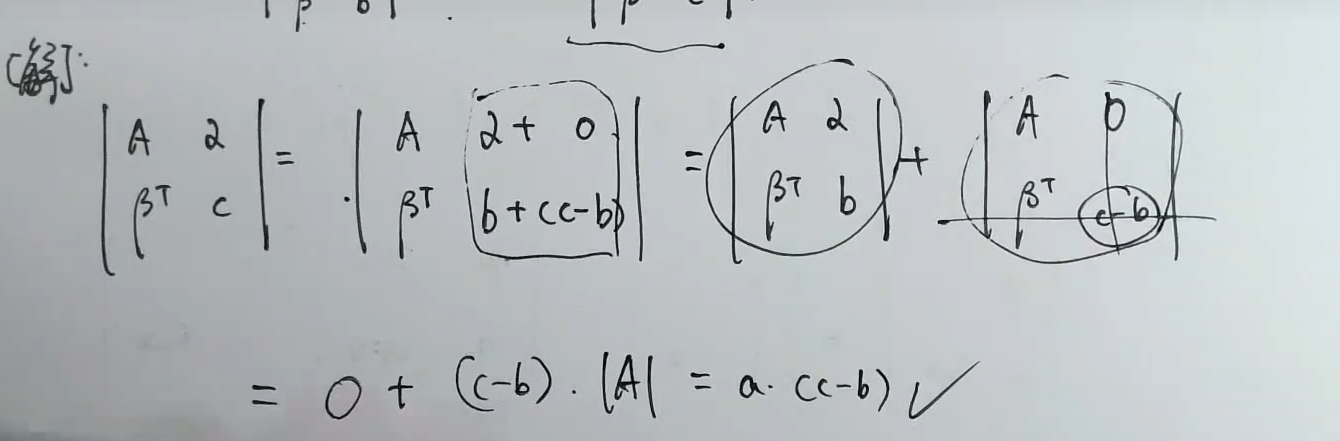 [解]:
| A α ; βᵀ c | = | A α + 0 ; βᵀ b + (c-b) | = | A α ; βᵀ b | + | A 0 ; βᵀ c-b |
= 0 + (c-b) · |A| = a · (c-b) ✓